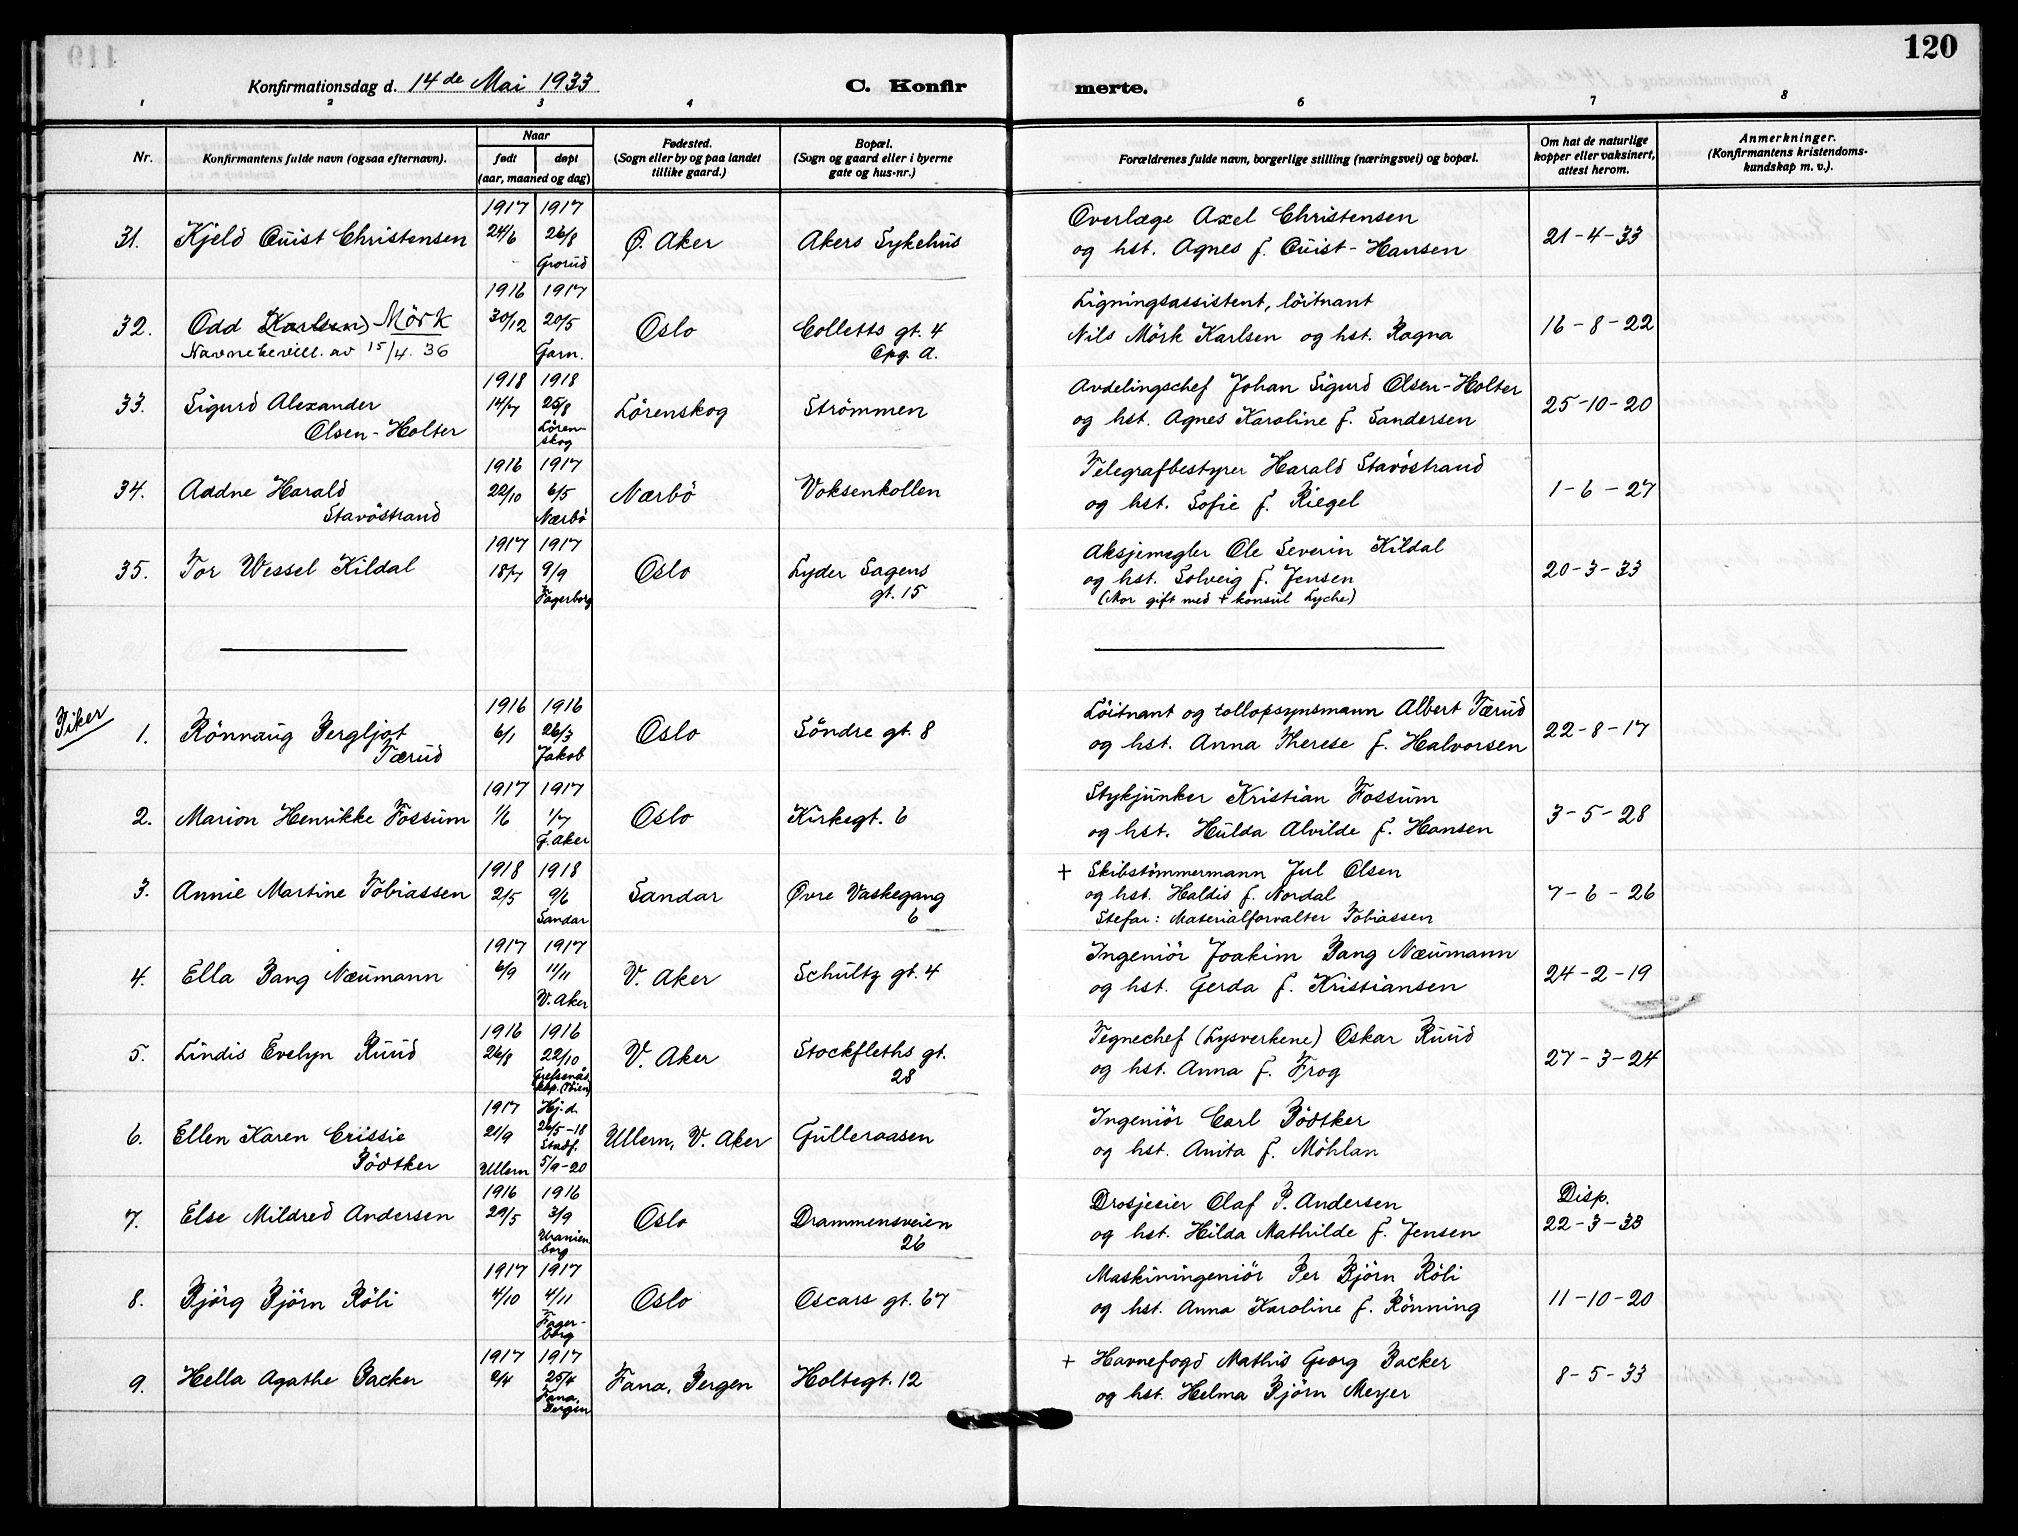 120
Konfirmationsdag d. 14de Mai 1933.
C. Konfir
merte.
1 2 3 4 6 7 8
Nr.
Konfirmantens fulde navn (ogsaa efternavn).
Naar
født
døpt
(aar, maaned og dag)
Fødested.
(Sogn eller by og paa landet
tillike gaard.)
Bopæl.
(Sogn og gaard eller i byerne
gate og hus-nr.)
Forældrenes fulde navn, borgerlige stilling (næringsvei) og bopæl.
Om hat de naturlige
kopper eller vaksinert,
attest herom.
Anmerkninger.
(Konfirmantens kristendoms-
kundskap m. v.).
1917 1917
31. Kjeld Quist Christensen 24/6 26/8 Ø. Aker Akers Sykehus
Grorud
Overlæge Axel Christensen
og hst. Agnes f. Quist-Hansen
21-4-33
1916 1917
32. Odd (Karlsen) Mörk 30/12 20/5 Oslo Colletts gt. 4
Navnebevill. av 15/4. 36 Garn. Opg. A.
Ligningsassistent, löitnant
Nils Mörk Karlsen og hst. Ragna
16-8-22
1918 1918
33. Sigurd Alexander 14/7 25/8 Lörenskog Strömmen
Olsen-Holter Lören-
skog
Avdelingschef Johan Sigurd Olsen-Holter
og hst. Agnes Karoline f. Sandersen
25-10-20
1916 1917
34. Addne Harald 22/10 6/5 Nærbö Voksenkollen
Stavöstrand Nærbö
Telegrafbestyrer Harald Stavöstrand
og hst. Sofie f. Riegel
1-6-27
1917 1917
35. Tor Wessel Kildal 18/7 9/9 Oslo Lyder Sagens
Fagerborg gt. 15
Aksjemegler Ole Severin Kildal
og hst. Solveig f. Jensen
(Mor gift med + konsul Lyche)
20-3-33
Piker
1916 1916
1. Rönnaug Bergljot 6/1 26/3 Oslo Söndre gt. 8
Tærud Jakob
Löitnant og tollopsynsmann Albert Tærud
og hst. Anna Therese f. Halvorsen
22-8-17
1917 1917
2. Marion Henrikke Fossum 1/6 1/7 Oslo Kirkegt. 6
G. Aker
Stykjunker Kristian Fossum
og hst. Hulda Alvilde f. Hansen
3-5-28
1918 1918
3. Annie Martine Tobiassen 2/5 9/6 Sandar Øvre Vaskegang
Sandar 6
+ Skibstömmermann Jul Olsen
og hst. Haldis f. Nordal
Stefar: Materialforvalter Tobiassen
7-6-26
1917 1917
4. Ella Bang Næumann 6/9 11/11 V. Aker Schultz gt. 4
V. Aker
Ingeniör Joakim Bang Næumann
og hst. Gerda f. Kristiansen
24-2-19
1916 1916
5. Lindis Evelyn Ruud 26/8 22/10 V. Aker Stockfleths gt.
28
Tegnechef (Lysverkene) Oskar Ruud
og hst. Anna f. Frog
27-3-24
1917 Hj.d.
6. Ellen Karen Crissie 21/9 26/5-18 Ullern, V. Aker Gulleraasen
Stadf.
Bödtker Ullern 5/9-20
Ingeniör Carl Bödtker
og hst. Anita f. Möhlan
1916 1916
7. Else Mildred Andersen 29/5 3/9 Oslo Drammensveien
Uranien 26
borg
Drosjeeier Olaf P. Andersen
og hst. Hilda Mathilde f. Jensen
Disp.
22-3-33
1917 1917
8. Björg Björn Röli 4/10 4/11 Oslo Oscars gt. 67
Fager-
borg
Maskiningeniör Per Björn Röli
og hst. Anna Karoline f. Rönning
11-10-20
1917 1917
9. Hella Agathe Backer 2/4 25/4 Fana, Bergen Holtegt. 12
Fana,
Bergen
+ Havnefogd Mathis Georg Backer
og hst. Helma Björn Meyer
8-5-33